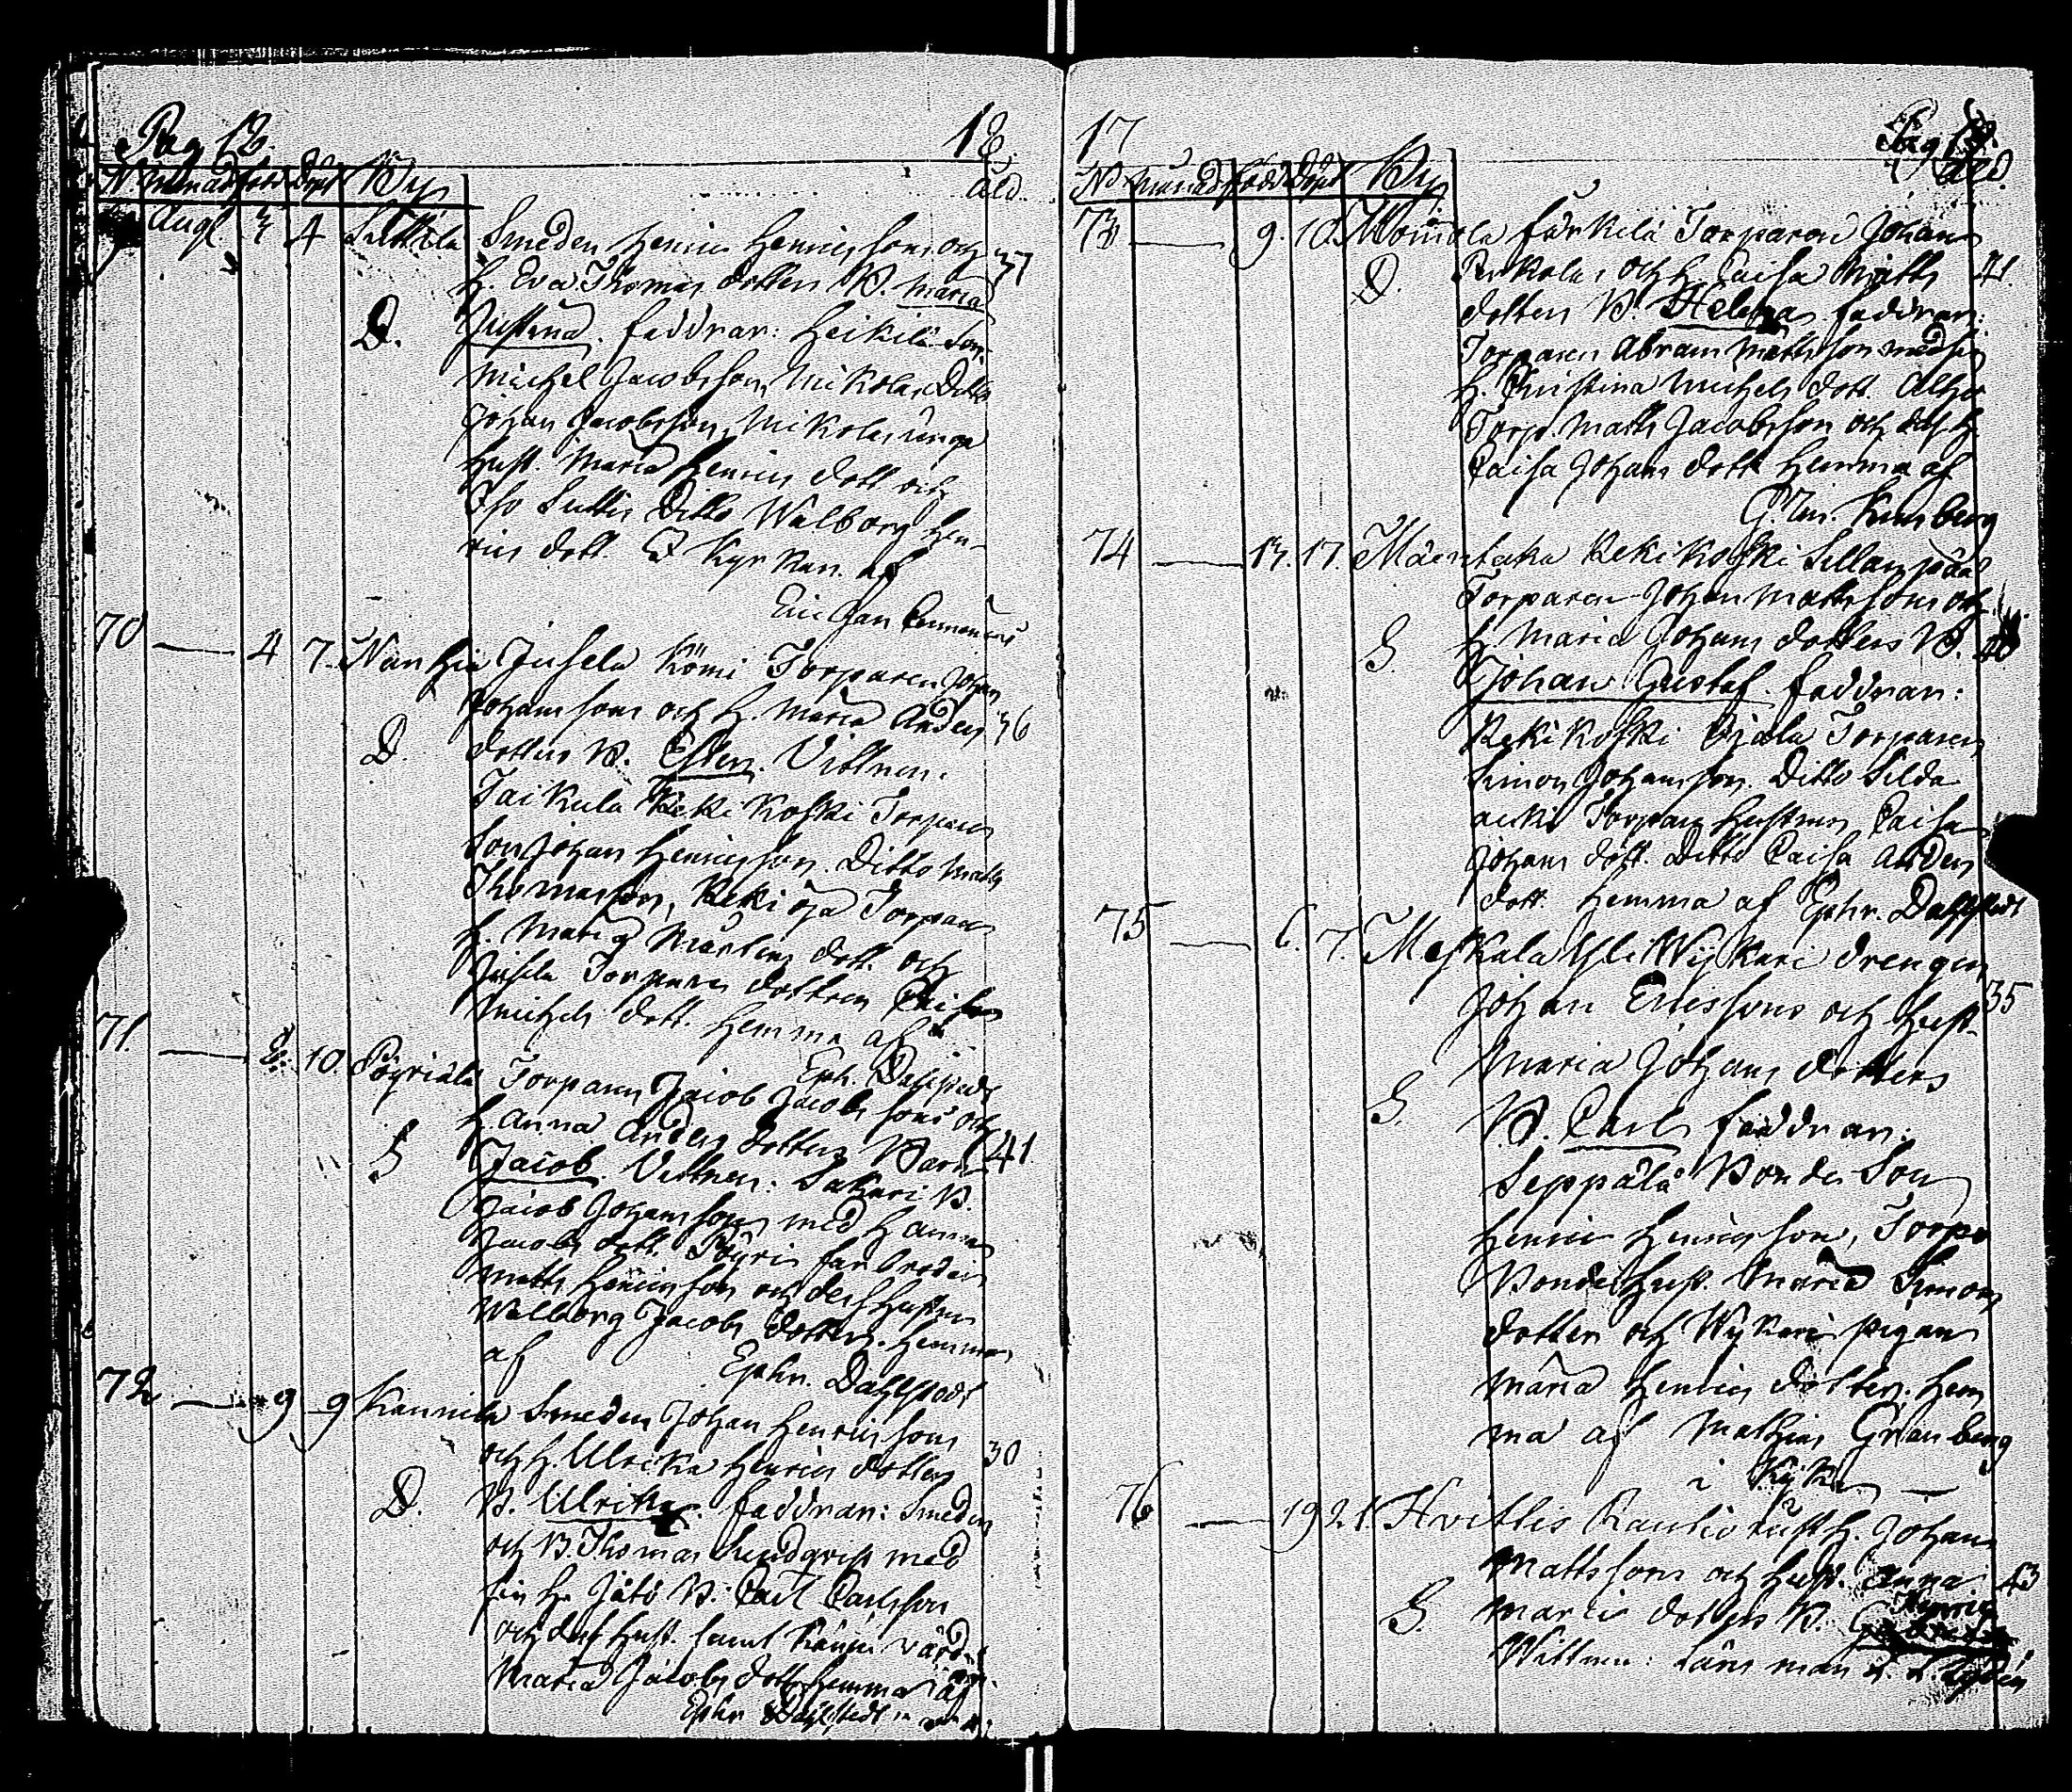 Pag 12.
N. månad född Döpt By åld.
Aug. 3 4 Suttila Smeden Henric Henricssons och 37
h. Eva Thomas dotters B. Maria
D. Justina. faddrar: Heikilä Son
Michel Jacobsson, Mikolas Ditto
Johan Jacobsson, Mikolas unga
hust. Maria Henrics dott och
Iso Suttis Ditto Walborg Hen-
rics dott. I Kyrkan. af
Eric Jan
70 — 4 7. Nanhia Jusela Kömi Torparen Johan
Johanssons och h. Maria Anders 36
D. dotters B. Ester. Vittnen:
Taikula Kekikoski Torpare
Son Johan Henricsson. Ditto Matts
Thomasson, Kekioja Torpare
h. Maria Mårtens dott. och
Jusela Torpare dottren Caisa
Michels dott. hemma af
Eph. Dahlstedt
71. — 8. 10. Pöyriälä Torparen Jacob Jacobssons och
h. Anna Anders dotters Barn 41.
G Jacob. Vittnen: Sakari B.
Jacob Johansson med h Anna
Jacobs dott. Pöyris farbroder
Matts Henricsson och dess hustru
Walborg Jacobs dotter. hemma
af Ephr. Dahlstedt
72 — 9 9 Kannila Smeden Johan Henricssons
och h. Ulrika Henrics dotters 30
D. B. Ulrika. faddrar: Smeden
och B. Thomas Lindqvist med
sin h. B. Carl Carlsson
och dess hust. samt värd
Maria Jacobs dott hemma af
Ephr Dahlstedt
17
N månad född Döpt By åld.
73 — 9. 10. Mommola Torparen Johan
D. och h. Caisa Matts 41.
dotters B. Helena faddrar:
Torparen Abram Mattsson med sin
h. Christina Michels dott.
Torp. Matts Jacobsson och dess h.
Caisa Johans dott hemma af
74 — 13. 17. Mäentaka Kekikoski Sillanpää
Torparen Johan Mattssons och
G. h. Maria Johans dotters B.
Johan Gustaf. faddrar:
Kekikoski Ojala Torparen
Simon Johansson. Ditto Silda
Torpare hustrun Caisa
Johans dott. Ditto Caisa Anders
dott. hemma af Ephr. Dahlstedt
75 — 6. 7. Meskala Yli Wijkari drengen
Johan Ericssons och hust. 35
Maria Johans dotters
G. B. Carl faddrar:
Seppälä Bonde Son
Henric Henricsson, Torpo
Bonde hust. Maria Simons
dotter och Wijkari pigan
Maria Henrics dotter. hem
ma af Mathias Grönberg
i Kyrk
76 — 19 21. Hvittis Rauhio rust. h. Johan
Mattssons och hust. Anna 43
G. Martis dotters B. Henric
Wittnen: Länsman